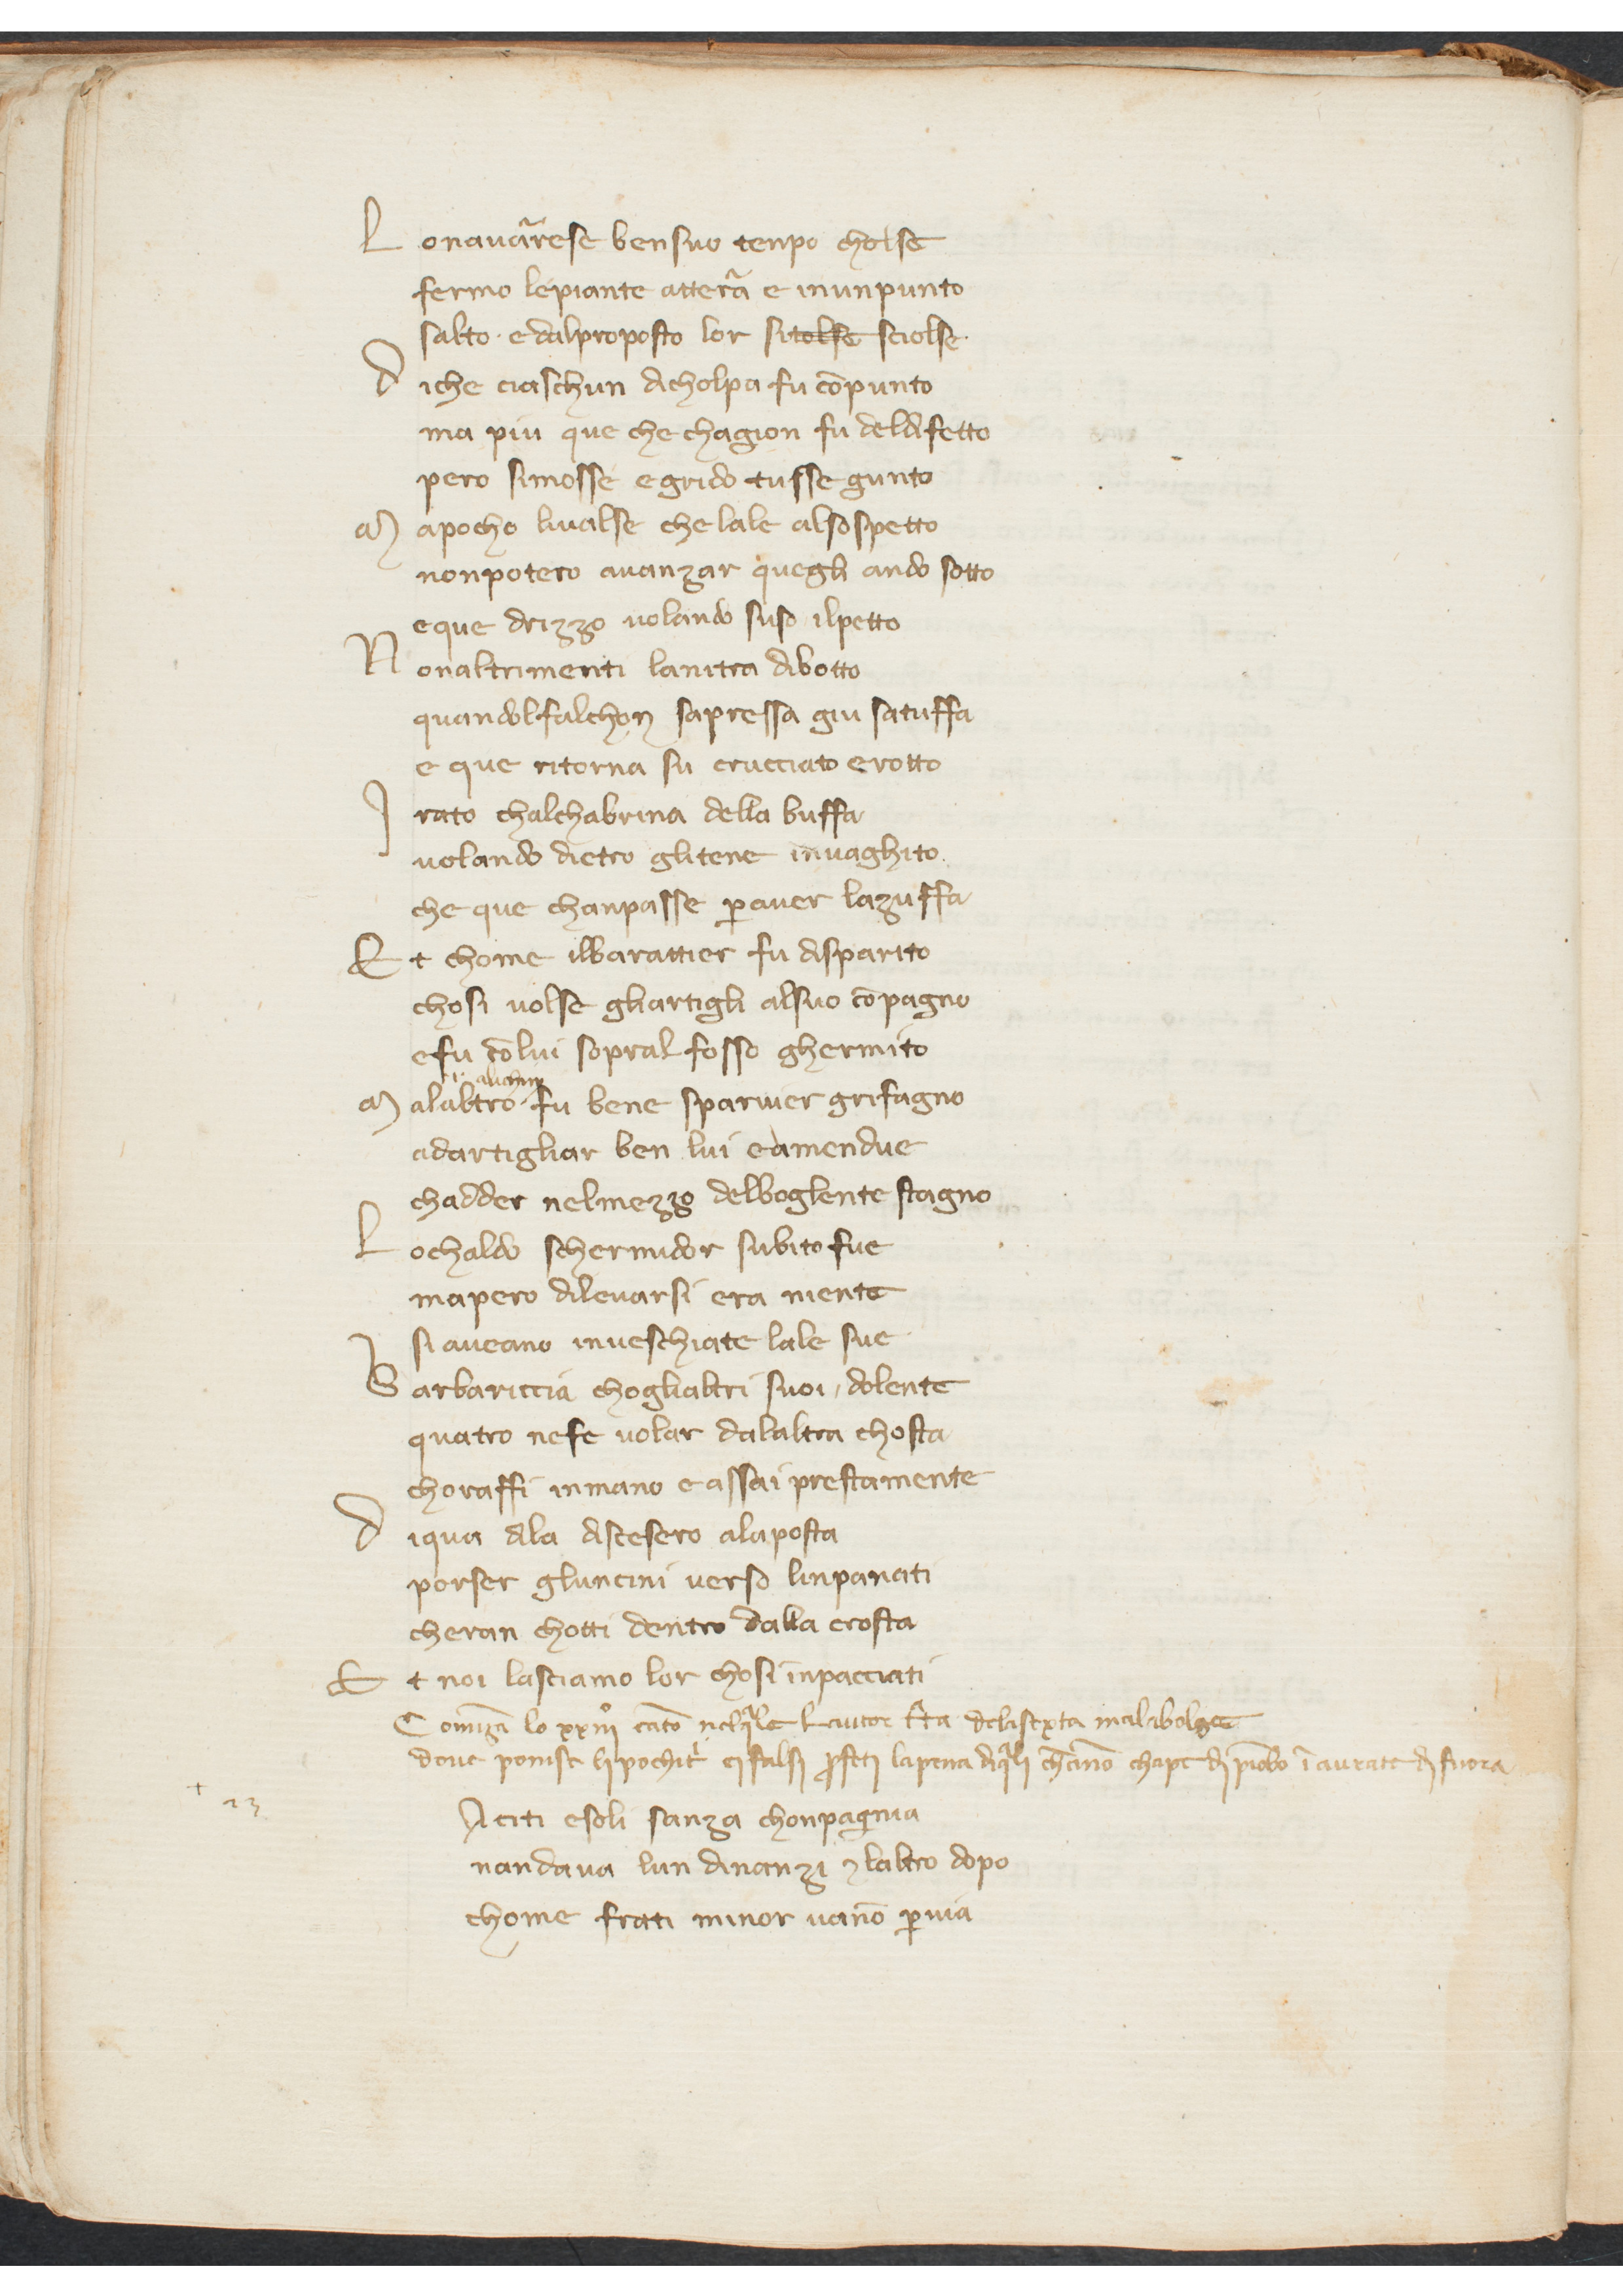 L onauar̃ese bensuo tenpo cholse
fermo lepiante atterã e inunpunto
salto · e dalproposto lor sitolse sciolse ·
D iche ciaschun dicholpa fu cōpunto
ma piu que che chagion fu deldifetto
pero simosse e grido tusse gunto
M apocho liualse che lale alsospetto
nonpotero auanzar quegli ando sotto
e que drizzo uolando suso ilpetto
N onaltrimenti lanitra dibotto
quandolfalchon sapressa giu satuffa
e que ritorna su crucciato erotto
I rato chalchabrina della buffa
uolando dietro glitene inuaghito
che que chanpasse ꝑauer lazuffa
E t chome ilbarattier fu disparito
chosi uolse gliartigli alsuo cōpagno
efu cōlui sopral fosso ghermito
alichino
M alaltro fu bene sparuier grifagno
adartigliar ben lui e amendue
chadder nelmezzo delboglente stagno
L ochaldo schermidor subito fue
mapero dileuarsi era niente
si aueano inueschiate lale sue
B arbariccia choglialtri suoi dolente
quatro nefe uolar dalaltra chosta
choraffi inmano e assai prestamente
D iqua dila discesero alaposta
porser gluncini uerso linpanati
cheran chotti dentro dalla crosta
E t noi lasciamo lor chosi inpacciati
Comīza lo xxiii cāto nelq̃le lautor t̃ta delasexta malabolge
doue ponisc lipochiti eifalsi ꝓfeti lapena diq̃li chāno chape di piōbo ī aurate di fuora
+ 23
Aciti esoli sanza chonpagnia
nandaua lun dinanzi ⁊ laltro dopo
chome frati minor uanō ꝑuia